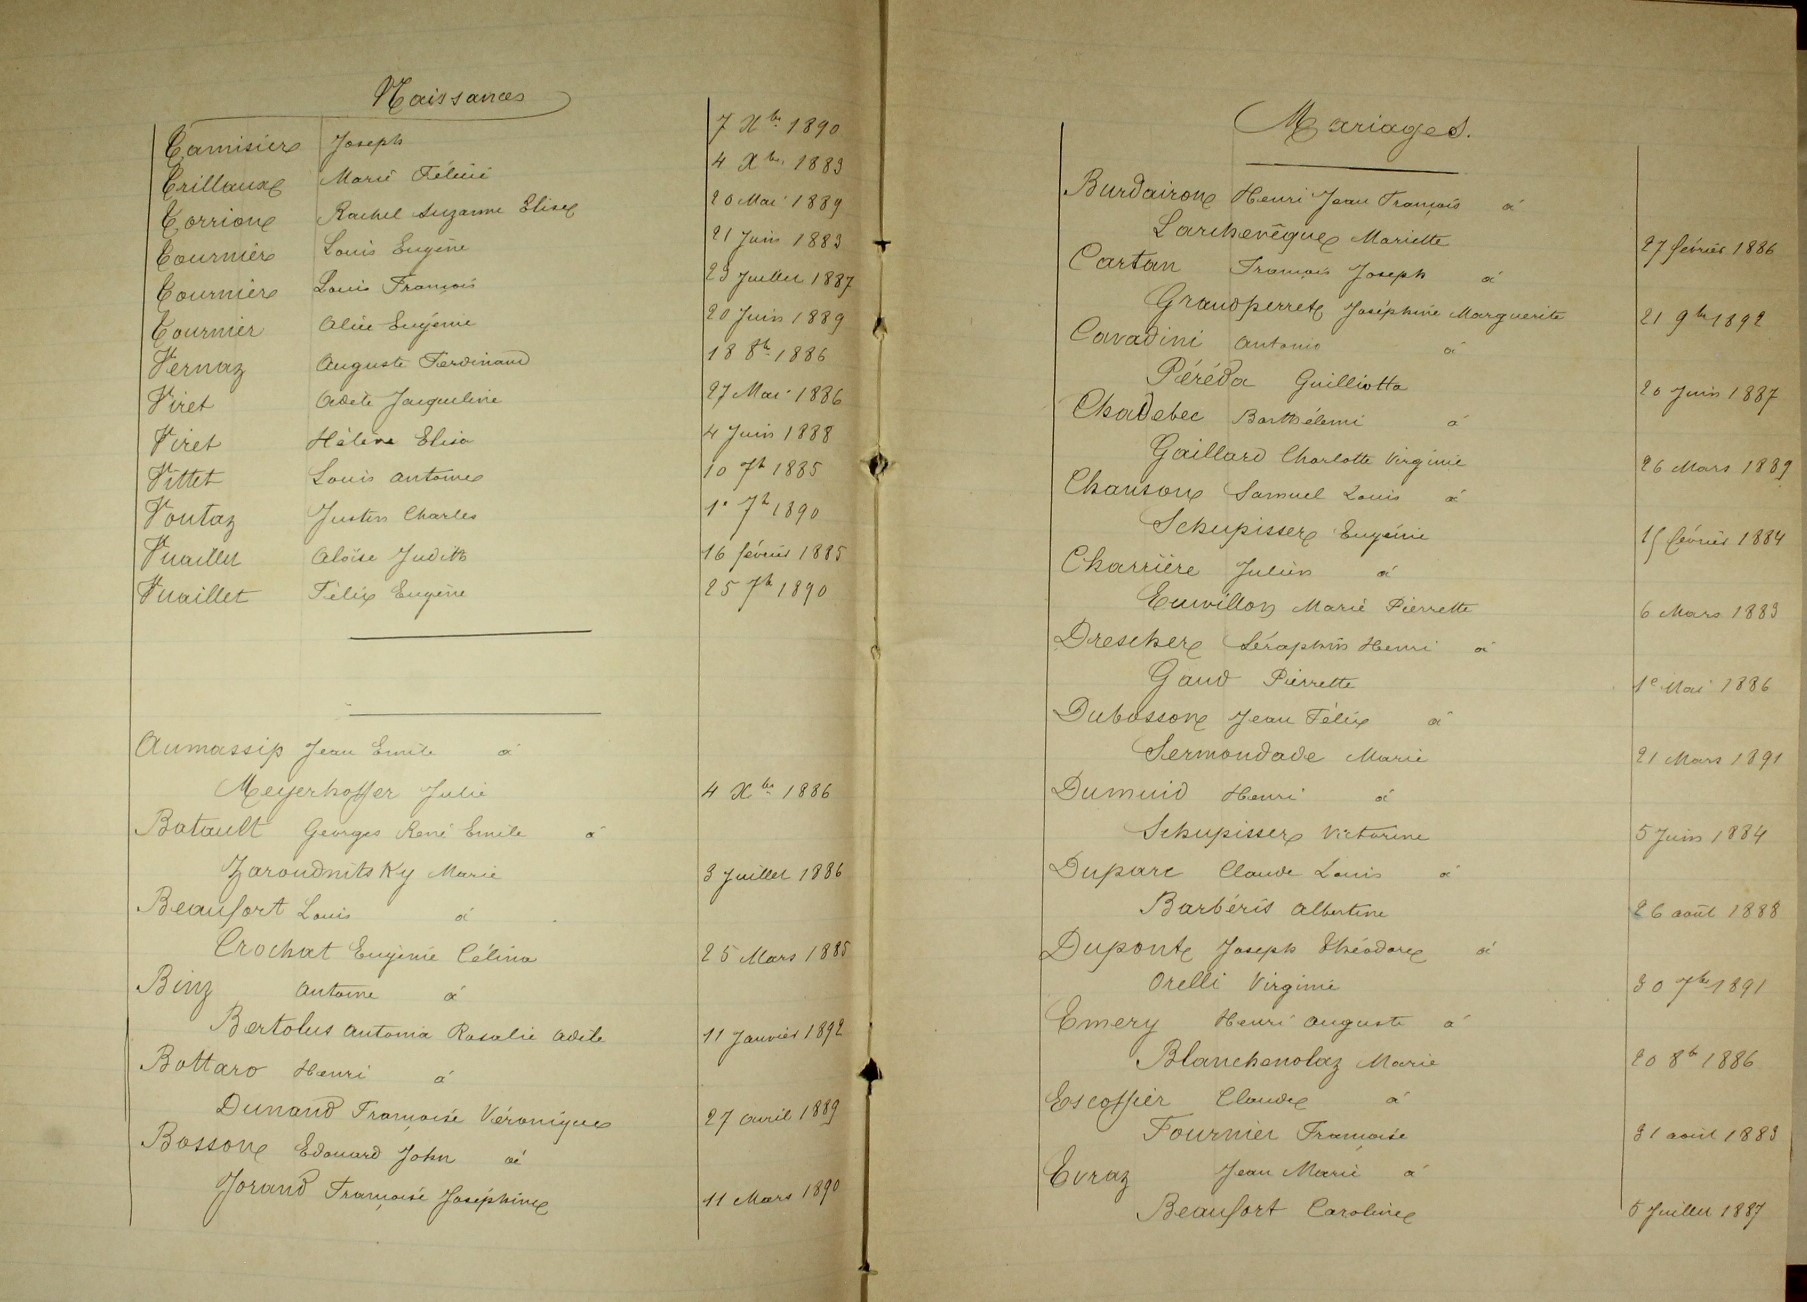 Naissances
Tamisier Joseph 7 Xbre 1890
Trillaux Marie Félicie 4 Xbre 1883
Torrione Rachel Suzanne Elise 20 Mai 1889
Tournier Louis Eugène 21 Juin 1883
Tournier Louis François 23 Juillet 1887
Tournier Alice Eugénie 20 Juin 1889
Vernaz Auguste Ferdinand 18 8bre 1886
Viret Adèle Jacqueline 27 Mai 1886
Viret Hélène Elisa 4 Juin 1888
Vittet Louis Antoine 10 7bre 1885
Voutaz Justin Charles 1er 7bre 1890
Vuaillet Aloïse Judith 16 février 1885
Vuaillet Félix Eugène 25 7bre 1890
Aumassip Jean Emile à
Meyerhoffer Julie 4 Xbre 1886
Batault Georges René Emile à
Zaroudnitsky Marie 3 Juillet 1886
Beaufort Louis à
Crochat Eugénie Célina 25 Mars 1885
Binz Antoine à
Bertolus Antonia Rosalie Adèle 11 Janvier 1892
Bottaro Henri à
Dunand Françoise Véronique 27 avril 1889
Bosson Edouard John à
Jorand Françoise Joséphine 11 Mars 1890
Mariages.
Burdairon Henri Jean François à
Larchevêque Mariette 27 février 1886
Cartan François Joseph à
Grandperret Joséphine Marguerite 21 9bre 1892
Cavadini Antonio à
Péréda Guilliotta 20 Juin 1887
Chadebec Barthélemi à
Gaillard Charlotte Virginie 26 Mars 1889
Chanson Samuel Louis à
Schupisser Eugénie 15 février 1884
Charrière Julien à
Euvillon Marie Pierrette 6 Mars 1883
Drescher Séraphin Henri à
Gaud Pierrette 1er Mai 1886
Dubosson Jean Félix à
Sermondade Marie 21 Mars 1891
Dumuid Henri à
Schupisser Victorine 5 Juin 1884
Duparc Claude Louis à
Barbéris Albertine 26 août 1888
Dupont Joseph Théodore à
Orelli Virginie 30 7bre 1891
Emery Henri Auguste à
Blanchenolaz Marie 20 8bre 1886
Escoffier Claude à
Fournier Françoise 31 août 1883
Evraz Jean Marie à
Beaufort Caroline 5 Juillet 1887